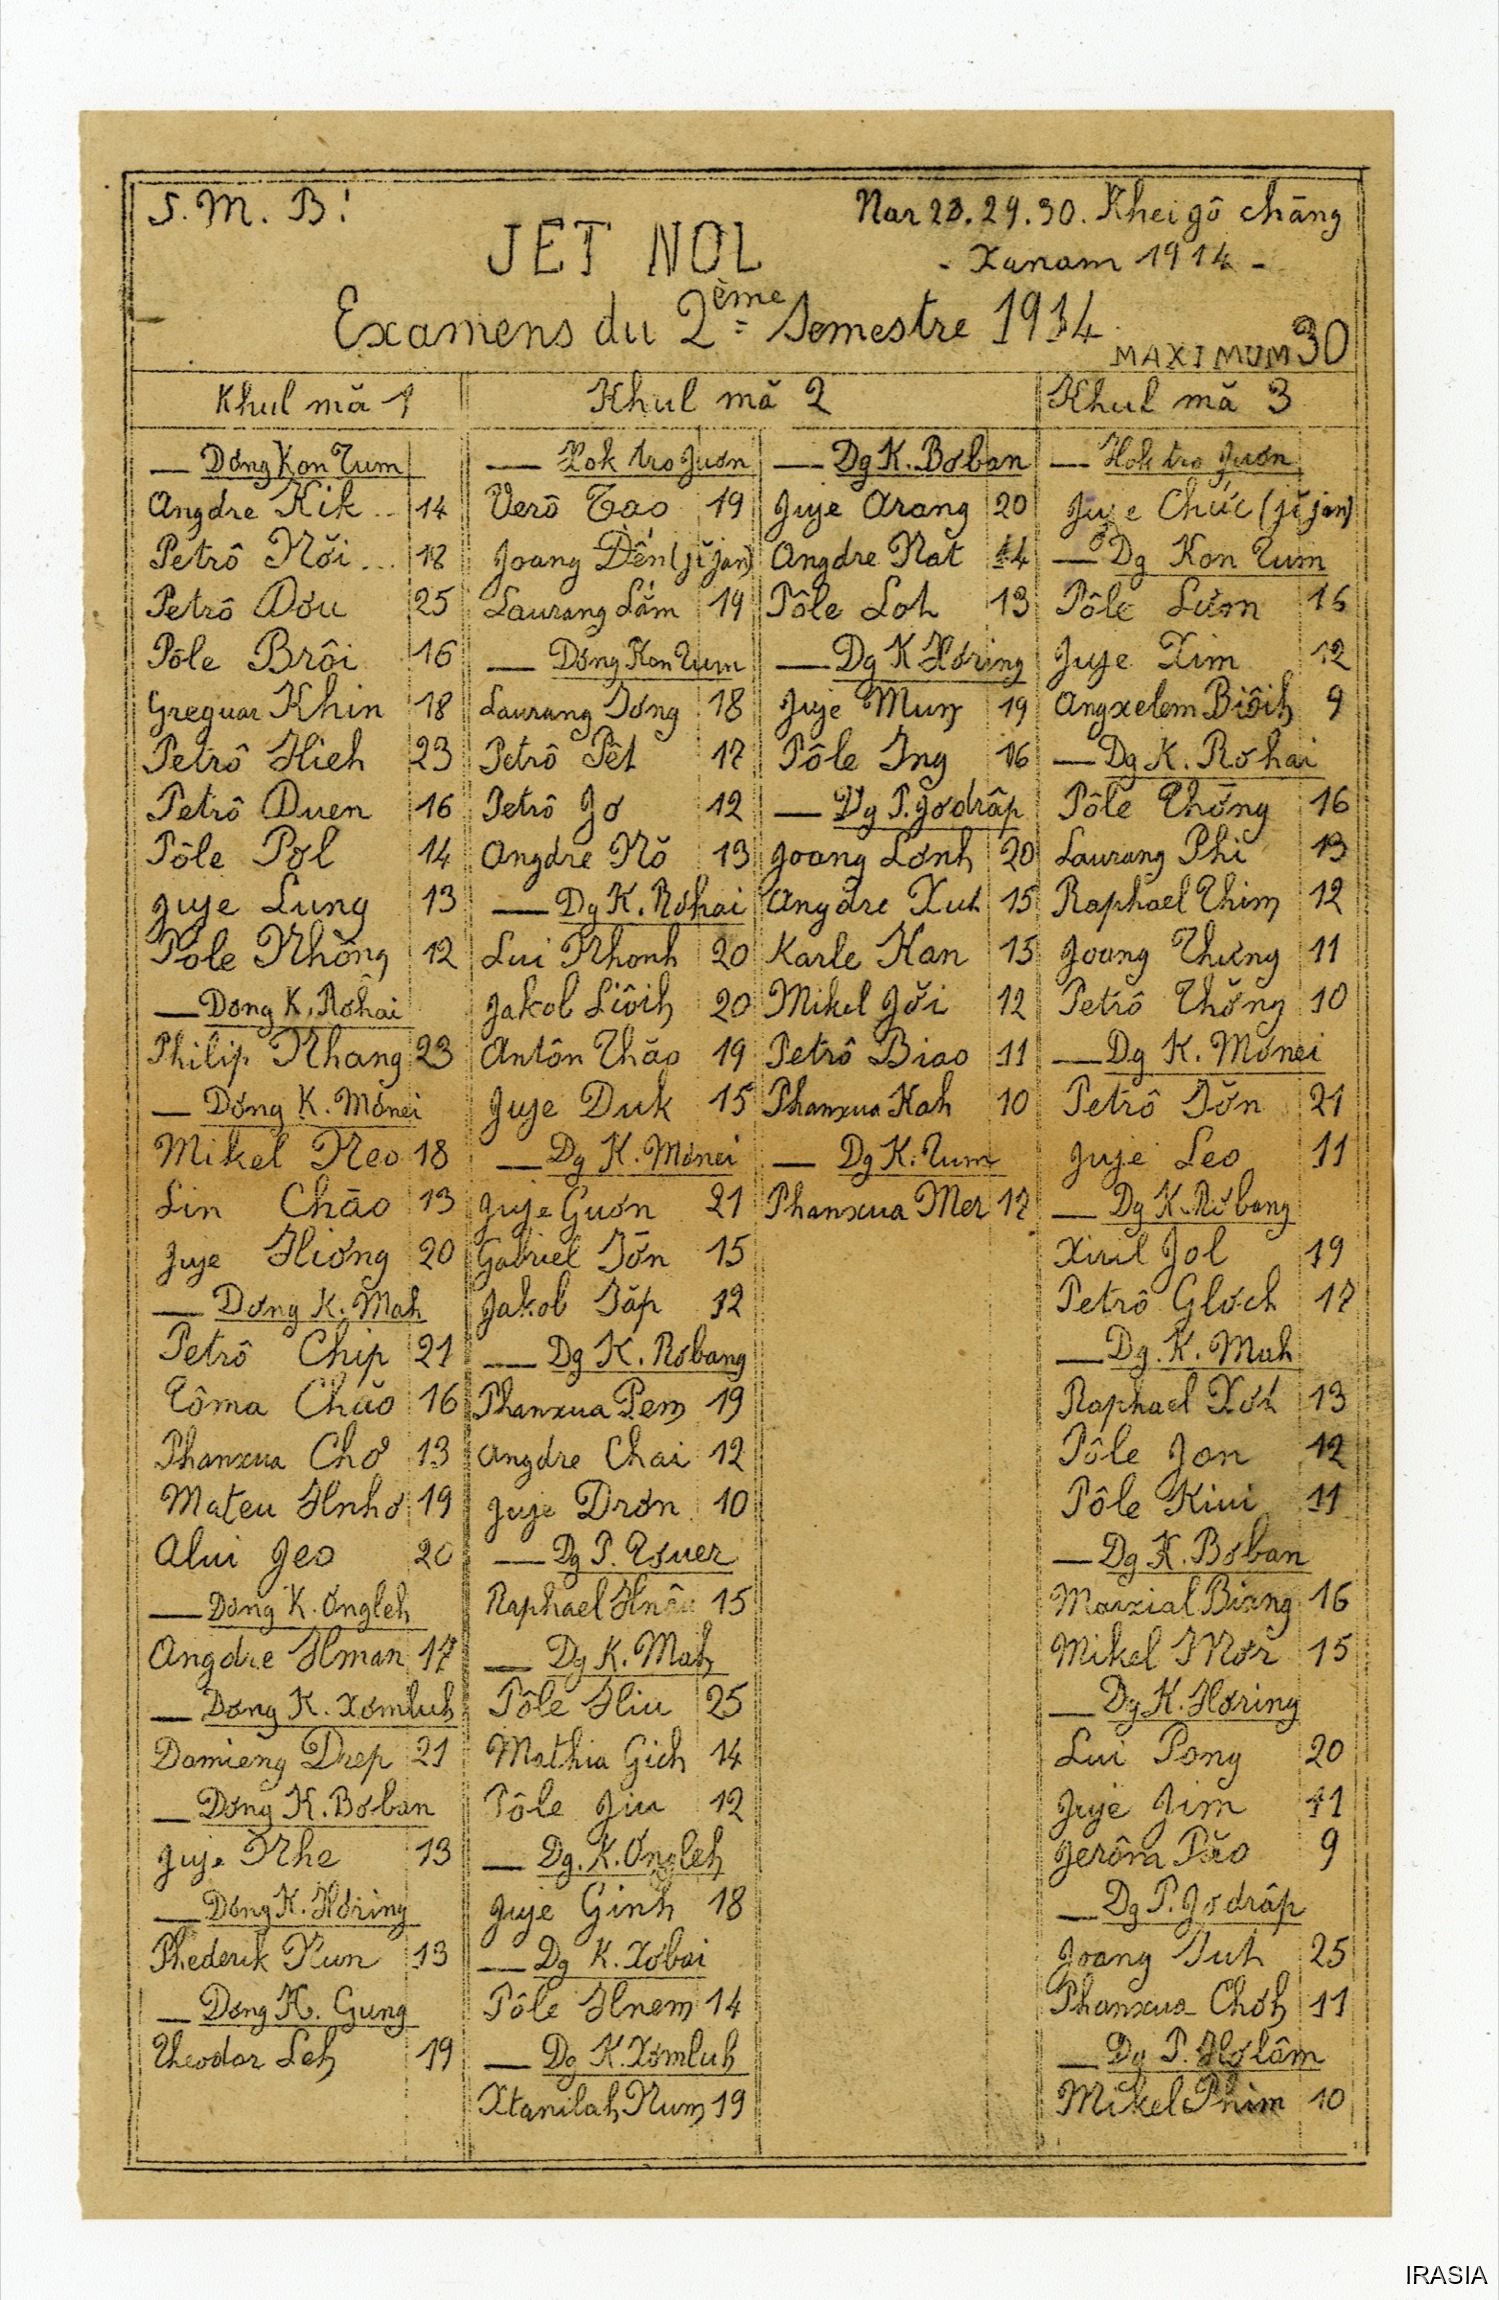 S. M. B!
Nar 28. 29. 30. Khei gô chăng
- Xanam 1914 -
JET NOL
Examens du 2ème Semestre 1914
MAXIMUM 30
Khul mă 1
— Dơng Kon Tum
Angdre Kik .. 14
Petrô Nơi ... 18
Petrô Dơu 25
Pôle Brôi 16
Greguar Khin 18
Petrô Hieh 23
Petrô Duen 16
Pôle Pol 14
Juje Lung 13
Pôle Nhŏng 12
— Dơng K. Rơhai
Philip Nhang 23
— Dơng K. Mơnei
Mikel Neo 18
Lin Chăo 13
Juje Hiơng 20
— Dơng K. Mah
Petrô Chip 21
Tôma Chăo 16
Phanxua Chơ 13
Mateu Hnhơ 19
Alui Jeo 20
— Dơng K. Ơngleh
Angdre Hman 17
— Dơng K. Xơmluh
Damieng Drep 21
— Dơng K. Bơban
Juje Nhe 13
— Dơng K. Hơring
Phederik Nun 13
— Dơng K. Gung
Theodor Leh 19
Khul mă 2
— Hok tro Juơn
Verô Tao 19
Joang Đến (jĭ jan)
Laurang Lắm 19
— Dơng Kon Tum
Laurang Iơng 18
Petrô Pêt 17
Petrô Jơ 12
Angdre Nŏ 13
— Dg K. Rơhai
Lui Nhonh 20
Jakob Liôih 20
Antôn Thăo 19
Juje Duk 15
— Dg K. Mơnei
Juje Guơn 21
Gabriel Iơ̆n 15
Jakob Iăp 12
— Dg K. Rơbang
Phanxua Pem 19
Angdre Chai 12
Juje Drơn 10
— Dg P. Tơuer
Raphael 15
— Dg K. Mah
Pôle Hiu 25
Mathia Gich 14
Pôle Jiu 12
— Dg. K. Ơngleh
Juje Ginh 18
— Dg K. Xơbai
Pôle Hnem 14
— Dg K. Xơmluh
Xtanilah Num 19
— Dg K. Bơban
Juje Arang 20
Angdre Nat 14
Pôle Loh 13
— Dg K Hơring
Juje Mun 19
Pôle Ing 16
— Dg P. Jơdrâp
Joang Lơnh 20
Angdre Xut 15
Karle Kan 15
Mikel Jơ̆i 12
Petrô Biao 11
Phanxua Kah 10
— Dg K. Tum
Phanxua Mer 17
Khul mă 3
— Hok tro Juơn
Juje Chức (jĭ jan)
— Dg Kon Tum
Pôle Lưm 16
Juje Xim 12
Angxelem Biôih 9
— Dg K. Rơhai
Pôle Thơ̆ng 16
Laurang Phi 13
Raphael Thim 12
Joang Thưng 11
Petrô Thŏng 10
— Dg K. Mơnei
Petrô Iơ̆n 21
Juje Leo 11
— Dg K. Rơbang
Xiril Jol 19
Petrô Glơch 17
— Dg. K. Mah
Raphael 13
Pôle Jon 12
Pôle Kiui 11
— Dg K. Bơban
Marxial Biang 16
Mikel Mơr 15
— Dg K. Hơring
Lui Pong 20
Juje Jim 11
Jerôm Păo 9
— Dg P. Jơdrâp
Joang Iuh 25
Phanxua Chơh 11
— Dg P. Hơlâm
Mikel Phim 10
IRASIA